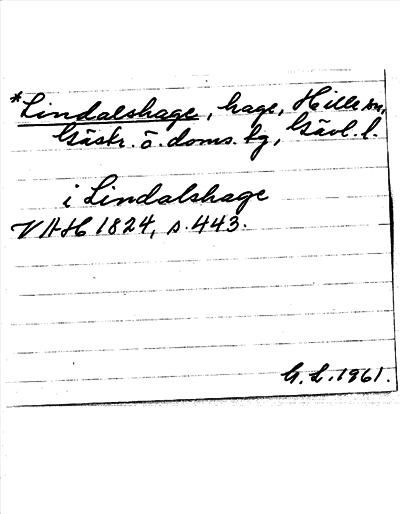 *Lindalshage, hage, Hille sn,
Gästr. ö. doms. tg, Gävl. l.
i Lindalshage
VAH 1824, s. 443.
G. L. 1961.